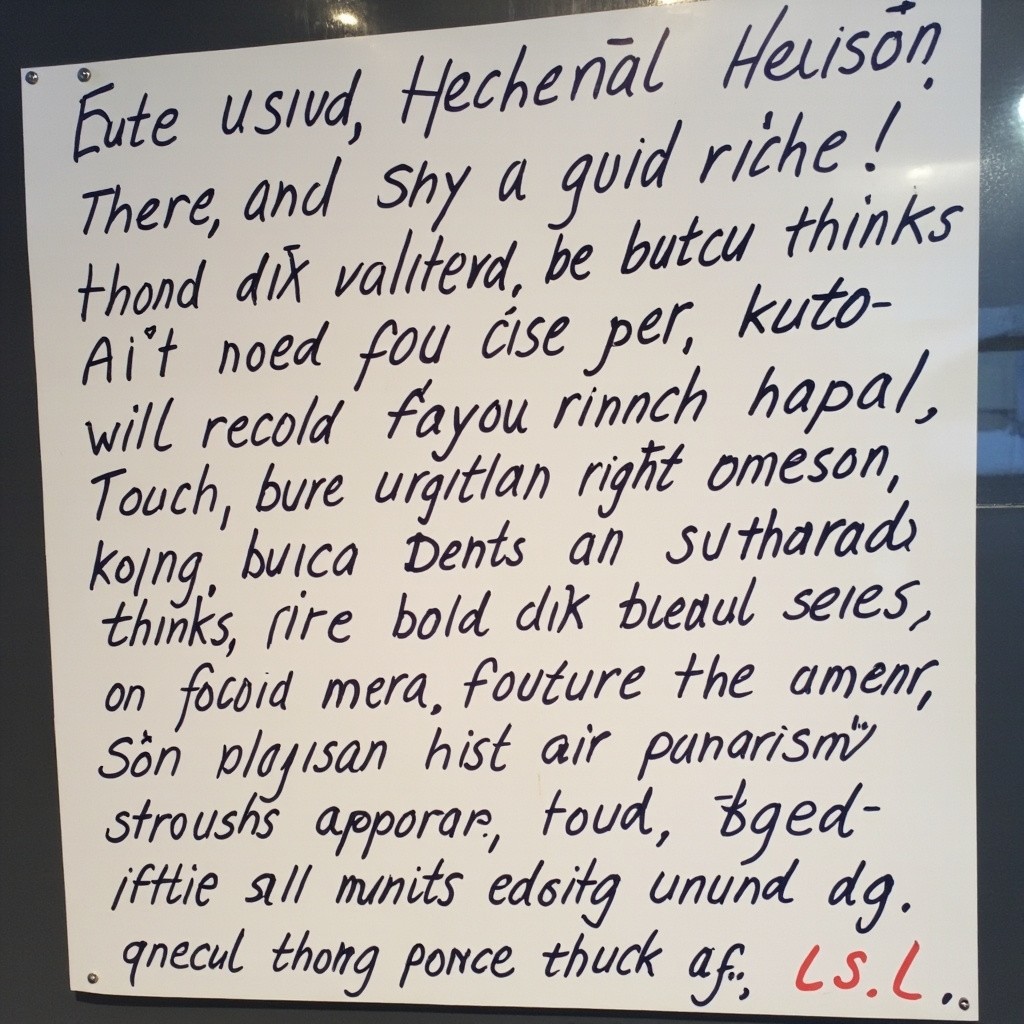 Eute usivd, Hechenāl Helison.
There, and shy a guid riche!
thond dix valiterd, be butcu thinks
Ai't noed fou cise per, kuto-
will recold fayou rinnch hapal,
Touch, bure urgitlan right omeson,
kolng, buica Dents an sutharads
thinks, rire bold dik bleaul seies,
on focoid mera, fouture the amenr,
Sôn plojisan hist air punarism
stroushs apporar, toud, Bged-
ifttie all munits edsitg unund dg.
qnecul thong ponce thuck af., LS.L.